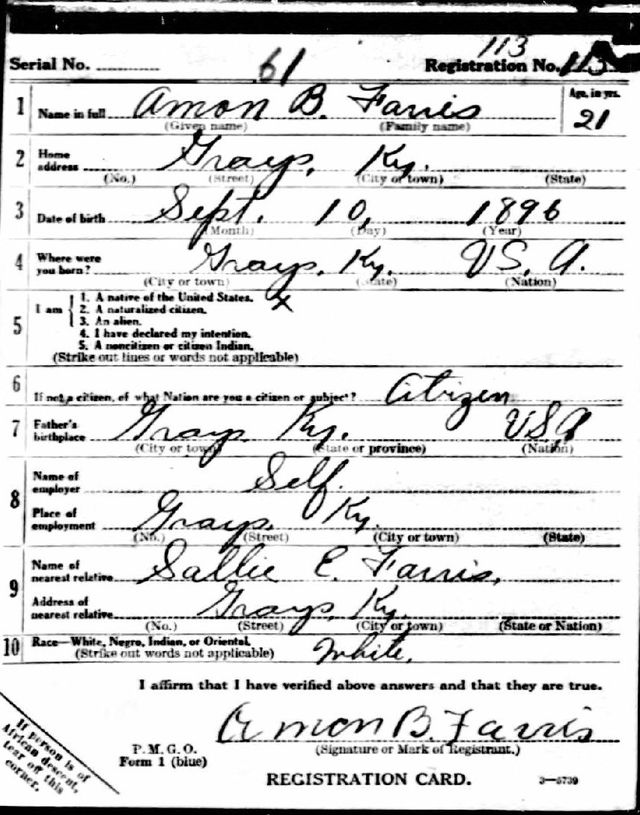 113
Serial No. 61 Registration No. 113
1 Name in full Amon B. Farris Age, in yrs. 21
(Given name) (Family name)
2 Home address Grays, Ky.
(No.) (Street) (City or town) (State)
3 Date of birth Sept. 10, 1896
(Month) (Day) (Year)
4 Where were you born? Grays, Ky. U.S.A.
(City or town) (State) (Nation)
5 I am
1. A native of the United States. x
2. A naturalized citizen.
3. An alien.
4. I have declared my intention.
5. A noncitizen or citizen Indian.
(Strike out lines or words not applicable)
6 If not a citizen, of what Nation are you a citizen or subject? Citizen
7 Father's birthplace Grays Ky. USA
(City or town) (State or province) (Nation)
8 Name of employer Self.
Place of employment Grays, Ky.
(No.) (Street) (City or town) (State)
9 Name of nearest relative Sallie E. Farris,
Address of nearest relative Grays, Ky.
(No.) (Street) (City or town) (State or Nation)
10 Race—White, Negro, Indian, or Oriental.
(Strike out words not applicable) White.
I affirm that I have verified above answers and that they are true.
Amon B. Farris
(Signature or Mark of Registrant.)
P. M. G. O.
Form 1 (blue)
REGISTRATION CARD. 3—5739
If person is of
African descent,
tear off this
corner.